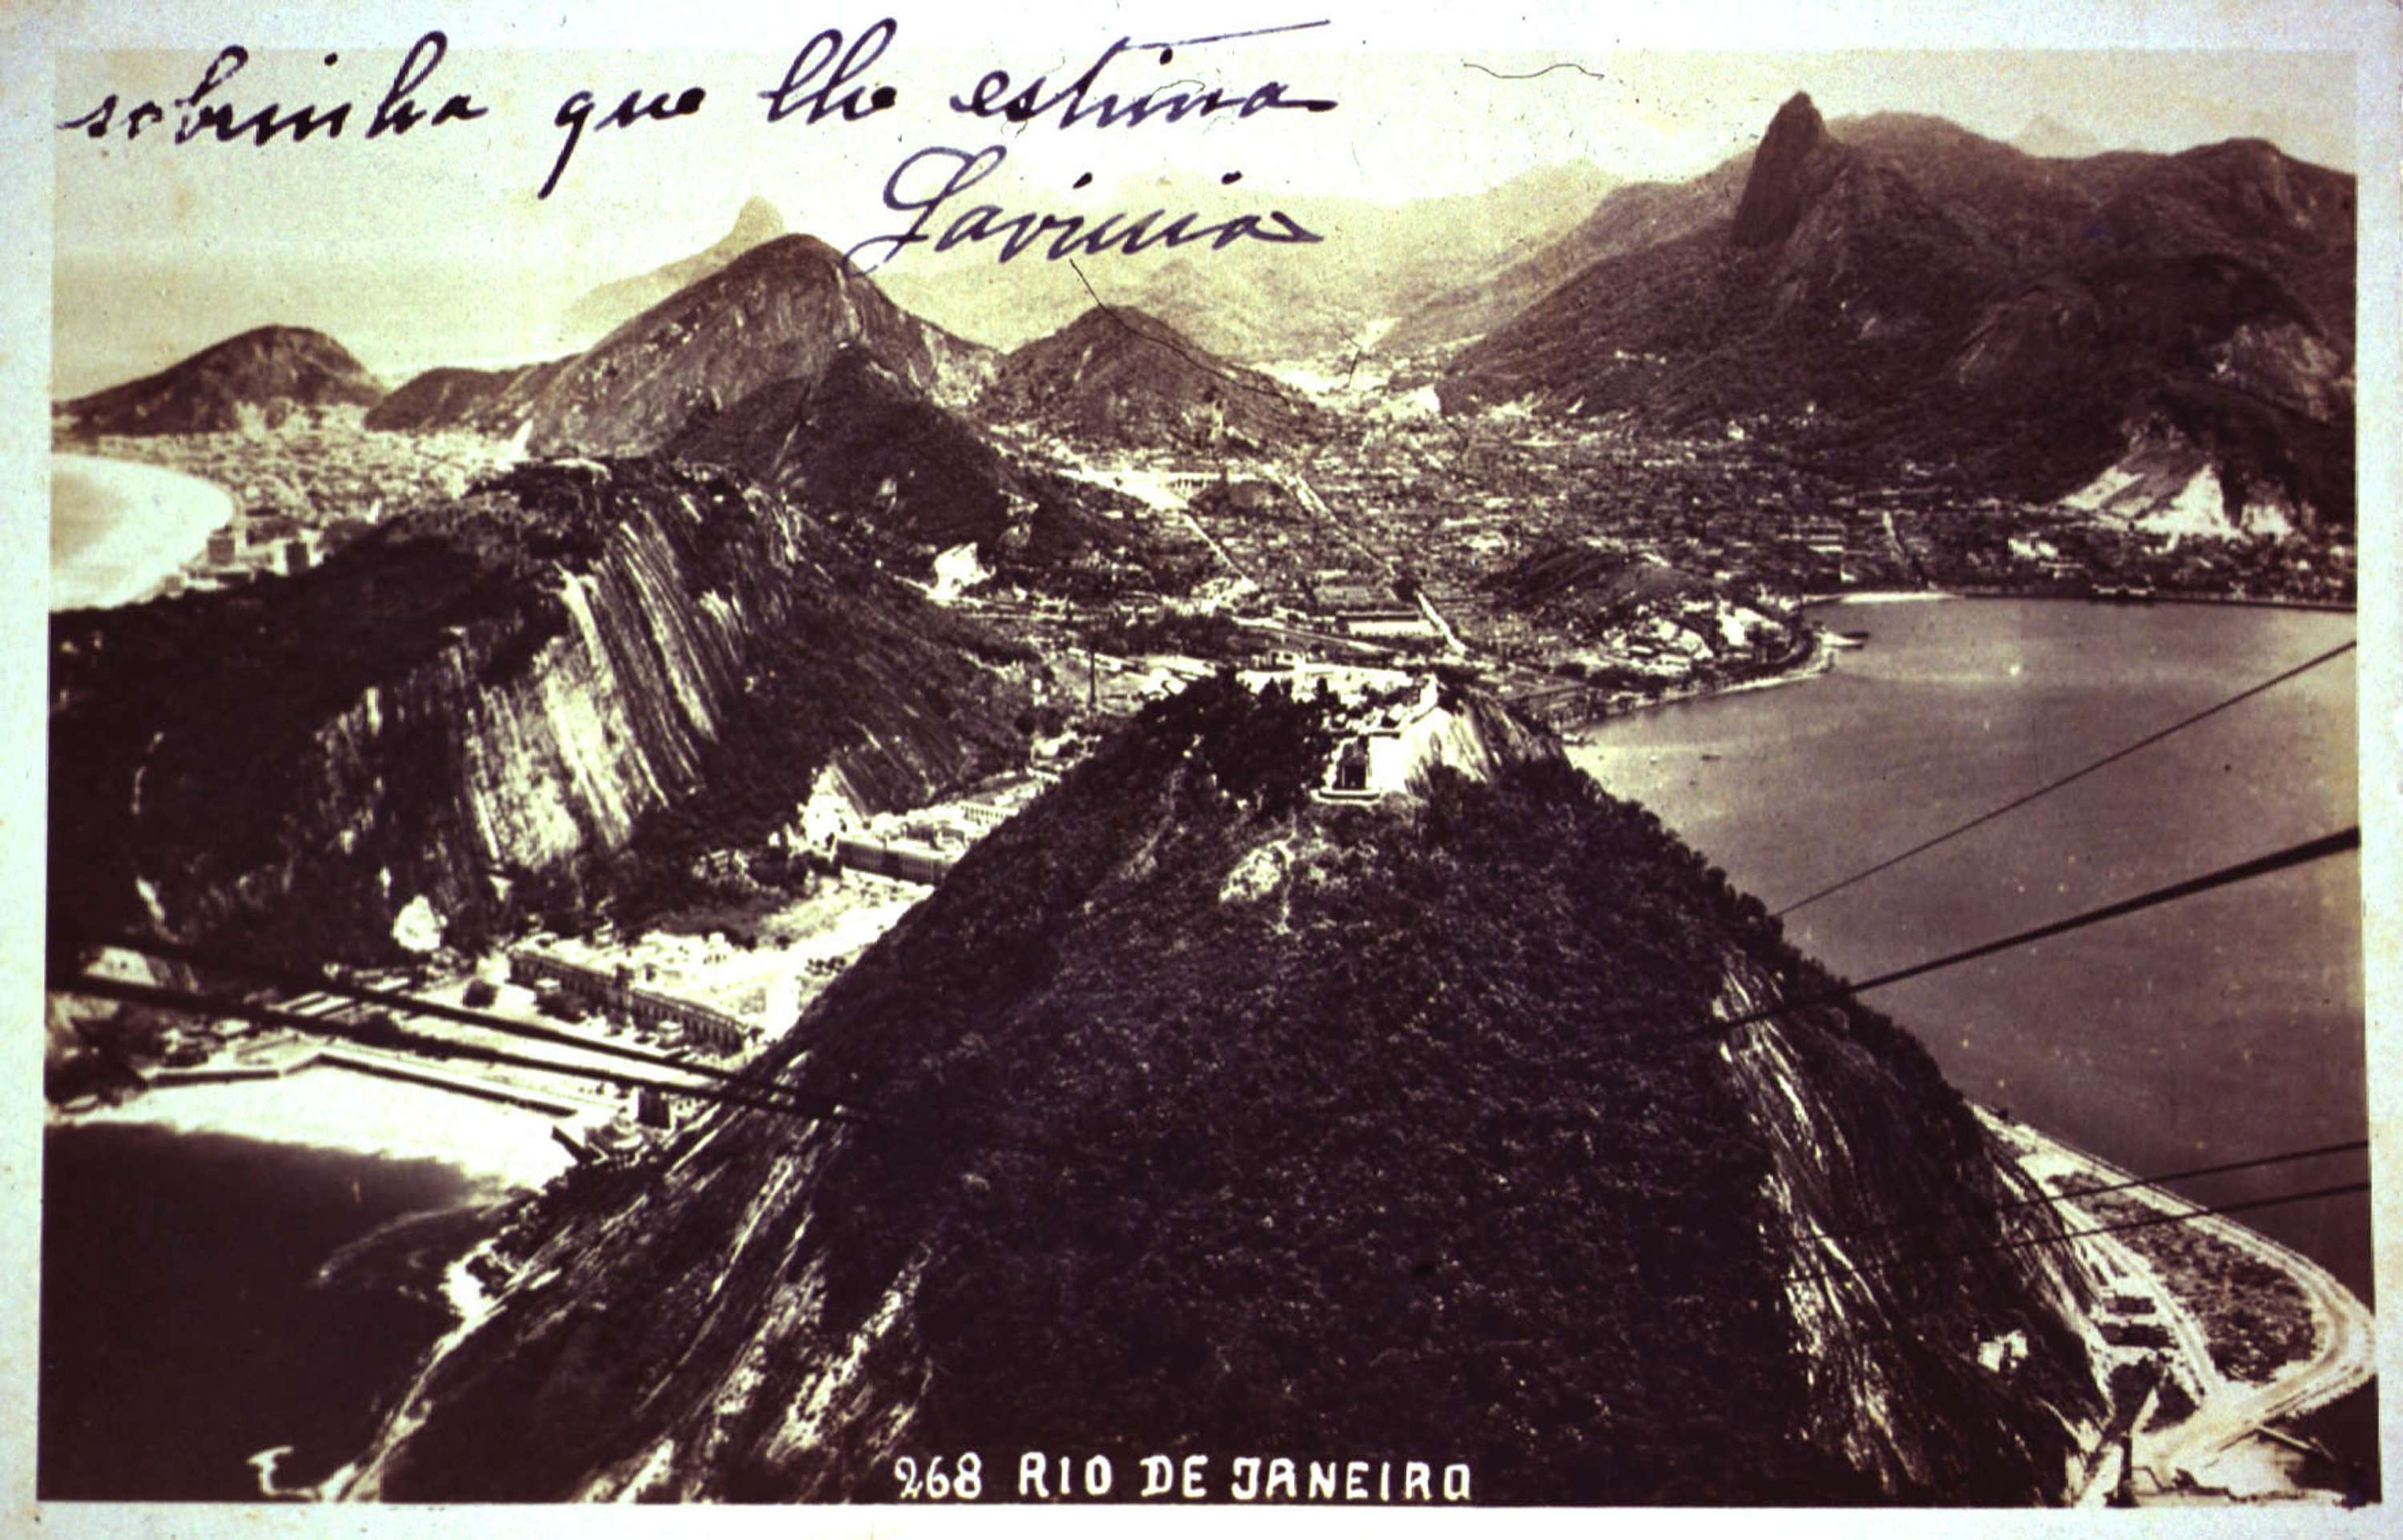 sobrinha que lhe estima
Lavinia
268 RIO DE JANEIRO